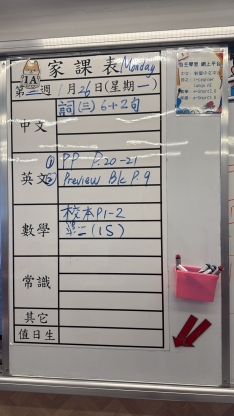 1A
家課表 Monday
第二週 1月26日(星期一)
中文 詞(三) 6+2句
英文 ① PP P.20-21
② Preview Blc P.9
數學 校本P1-2
第二(15)
常識
其它
值日生